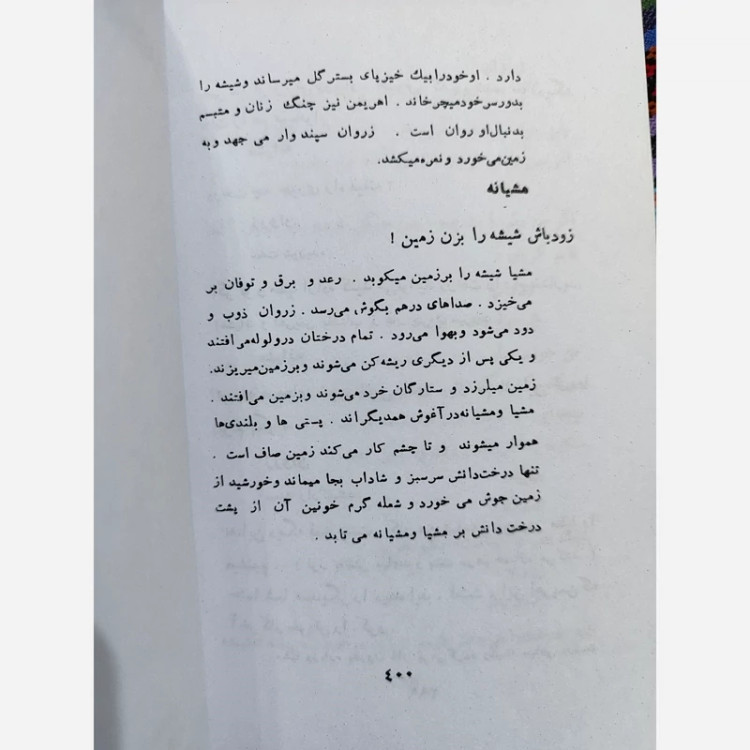 دارد . اوخودرابیك خیزپای بستر گل میرساند وشیشه را
بدورسرخودمیچرخاند . اهریمن نیز چنگ زنان و متبسم
بدنبال‌او روان است . زروان سپند وار می جهد وبه
زمین‌می‌خورد و نعره‌میكشد.
مشیانه
زودباش شیشه را بزن زمین !
مشیا شیشه را برزمین میكوبد . رعد و برق و توفان بر
می‌خیزد . صداهای درهم بگوش می‌رسد . زروان ذوب و
دود می‌شود وبهوا می‌رود . تمام درختان درولوله‌می‌افتند
و یكی پس از دیگری ریشه‌كن می‌شوند وبرزمین‌میریزند.
زمین میلرزد و ستارگان خرد می‌شوند وبزمین می‌افتند .
مشیا ومشیانه‌درآغوش همدیگراند . پستی ها و بلندی‌ها
هموار میشوند و تا چشم كار می‌كند زمین صاف است .
تنها درخت‌دانش سرسبز و شاداب بجا میماند وخورشید از
زمین جوش می خورد و شعله گرم خونین آن از پشت
درخت دانش بر مشیا ومشیانه می تابد .
٤٠٠